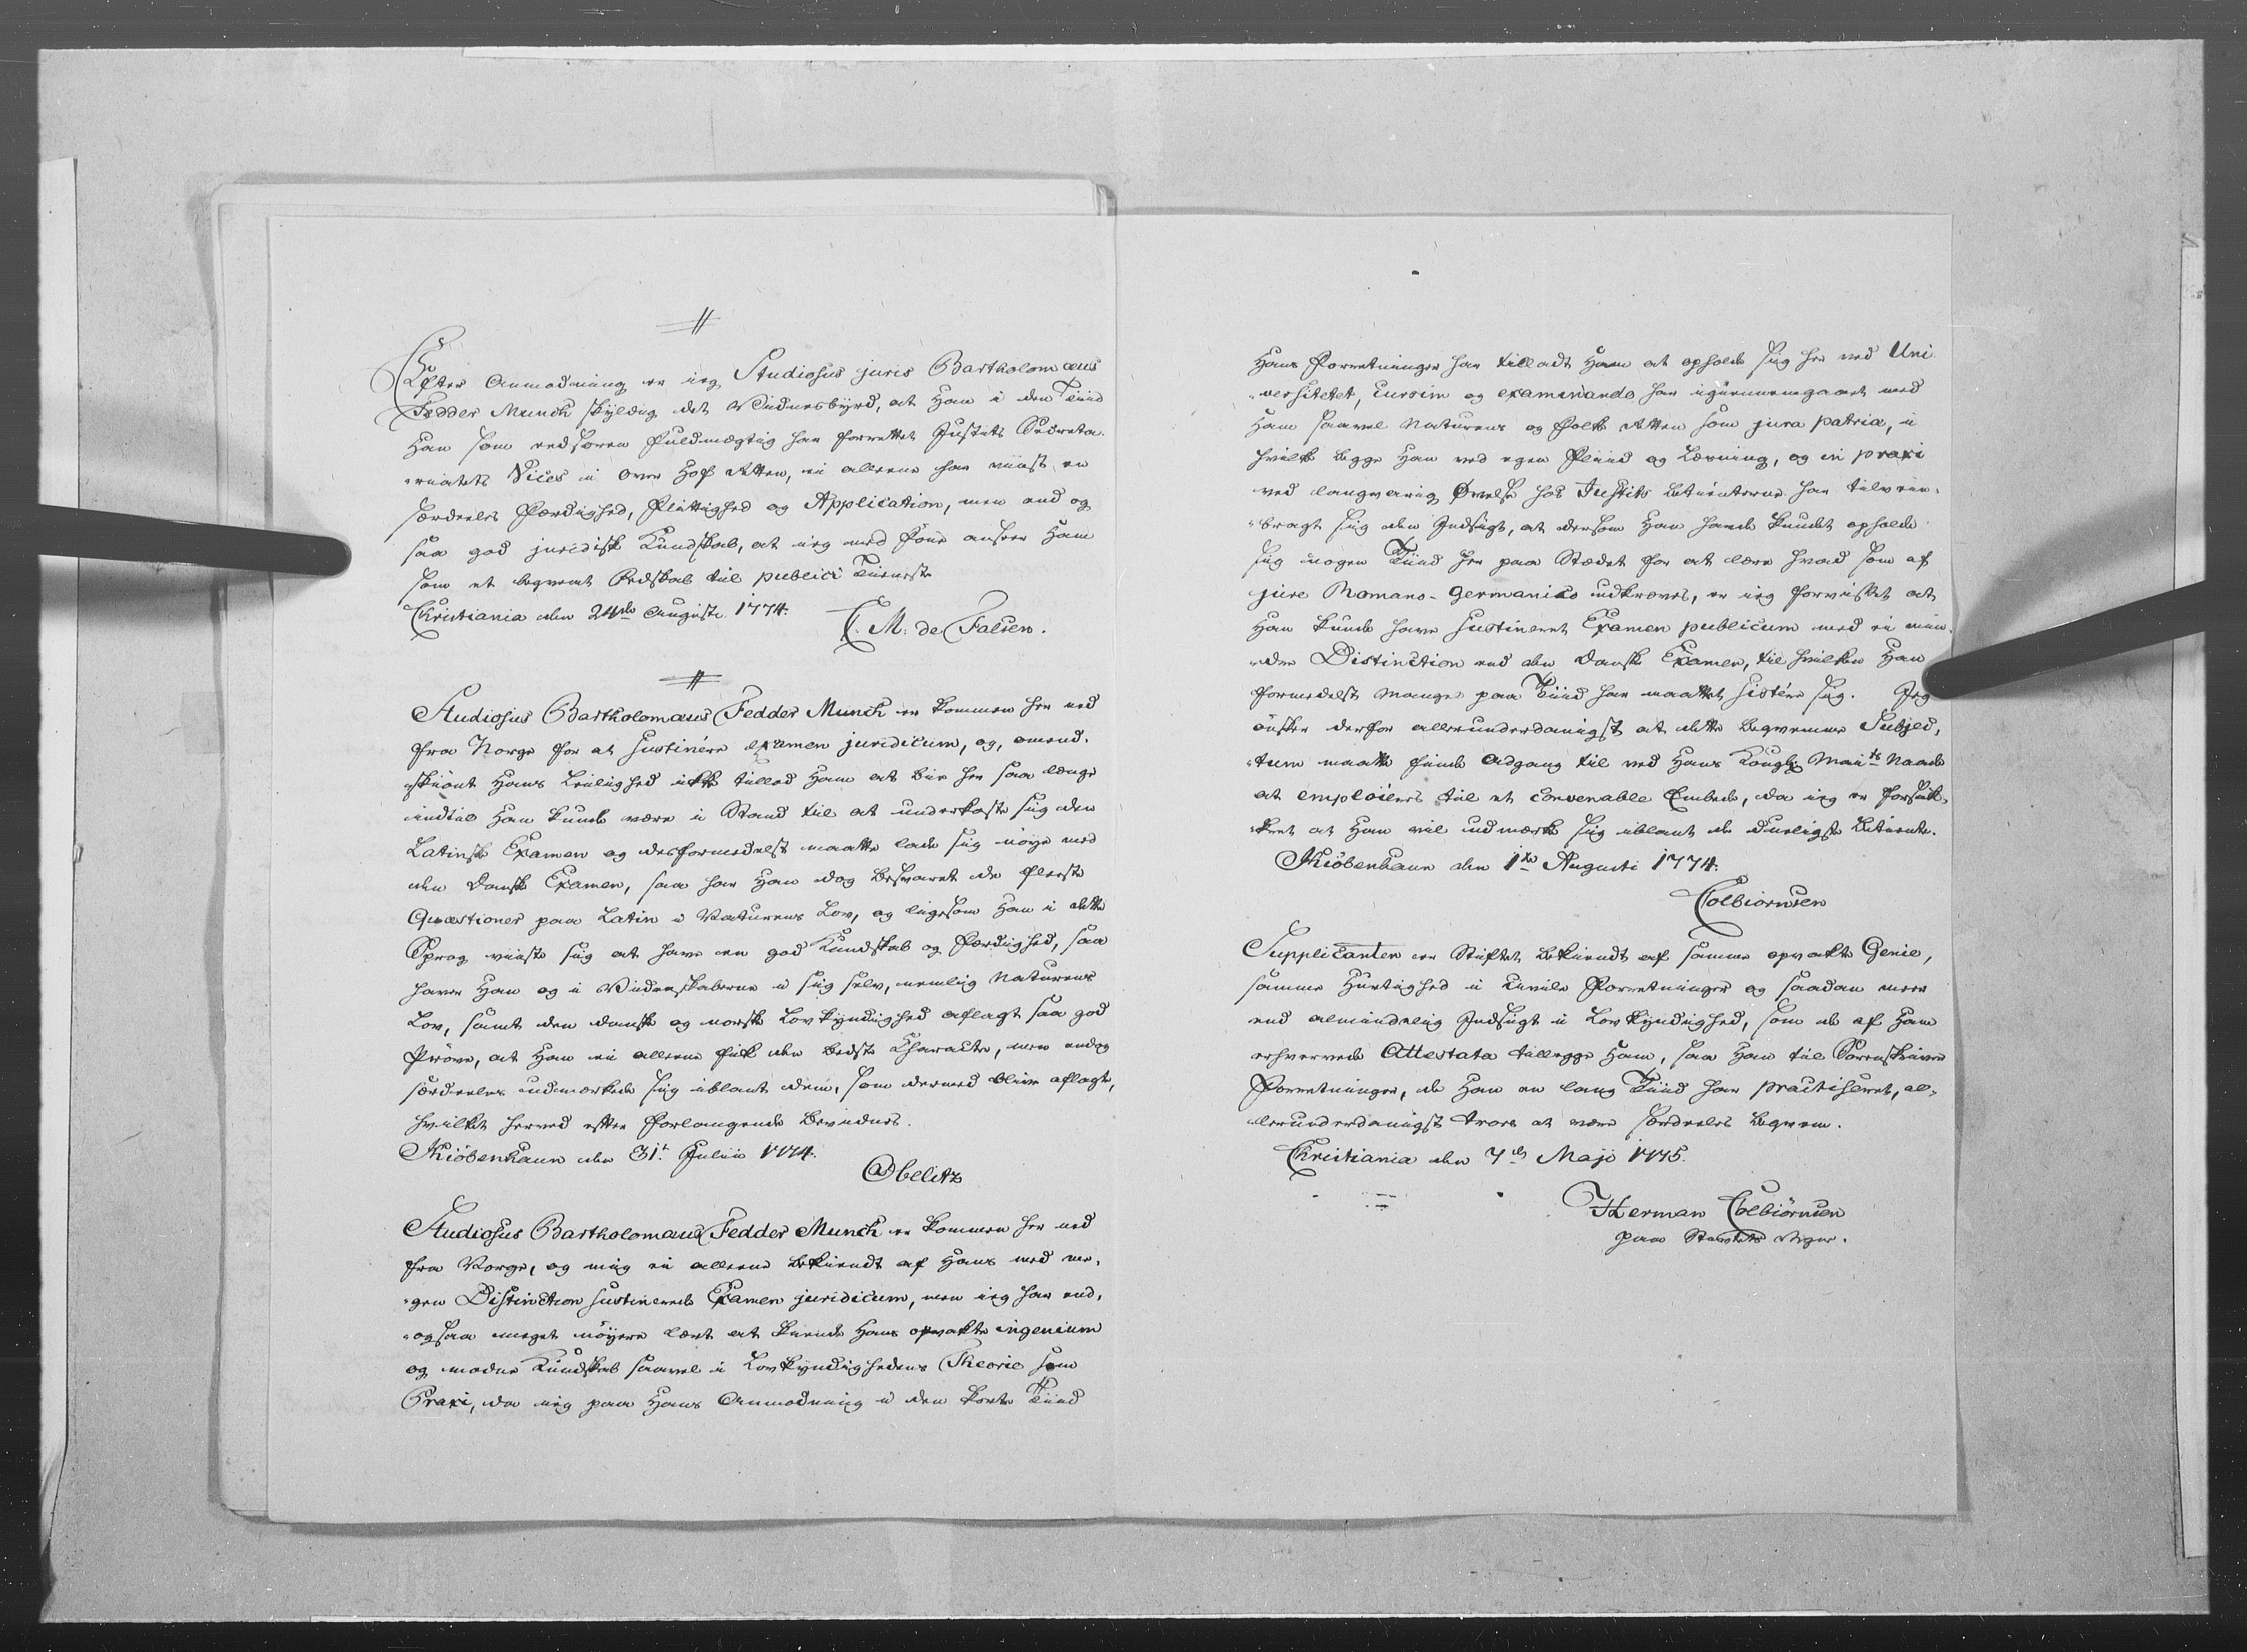 //
Efter Anmodning er jeg Studiosus juris Bartholomæus
Fedder Munch skyldig det Vidnesbyrd, at Han i den Tiid
Han som edsvoren Fuldmægtig har forrettet Justits Secreta-
-riatets Vices i Over Hof Retten, ei alleene har viist en
særdeeles Færdighed, Flittighed og Application, men end og
saa god juridisk Kundskab, at jeg med Føie anseer Ham
som et beqvemt Redskab til publici Tieneste
Christiania den 24de Augusti 1774.
E. M: de Falsen.
//
Studiosus Bartholomæus Fedder Munch er kommen her ned
fra Norge for at sustinére examen juridicum, og, omend-
-skiönt Hans Leilighed ikke tillod Ham at bie her saa længe
indtil Han kunde være i Stand til at underkaste sig den
Latinske Examen og desformedelst maatte lade sig nöye med
den Danske Examen, saa har Han dog besvaret de fleeste
Quæstioner paa Latin i Naturens Lov, og ligesom Han i dette
Sprog viiste sig at have en god Kundskab og Færdighed, saa
haver Han og i Videnskaberne i sig selv, nemlig Naturens
Lov, samt den danske og norske Lovkyndighed aflagt saa god
Pröve, at Han ei alleene fik den bedste Character, men endog
særdeeles udmærkede sig iblant dem, som dermed bleve aflagte,
hvilket herved efter Forlangende bevidnes.
Kiöbenhaun den 31t Julii 1774.
Obelitz
Studiosus Bartholomæus Fedder Munch er kommen her ned
fra Norge, og mig ei alleene bekiendt af Hans med me-
-gen Distinction sustinerede Examen juridicum, men jeg har end-
-ogsaa meget nöyere lært at kiende Hans opvakte ingenium
og modne Kundskab saavel i Lovkyndighedens Theorie som
Praxi, da jeg paa Hans Anmodning i den korte Tiid
Hans Forretninger har tilladt Ham at opholde sig her ved Uni
-versitetet, cursim og examinando har igiennemgaaet med
Ham saavel Naturens og Folke Retten som jura patria, i
hvilke begge Han ved egen Fliid og Læsning, og in praxi
ved langvarig Övelse hos Justits betienterne har tilveie-
-bragt sig den Indsigt, at dersom Han havde kundet opholde
sig nogen Tiid her paa Stædet for at lære hvad som af
jure Romano-Germanico udkræves, er jeg forvisset at
Han kunde have sustineret Examen publicum med ei min-
-dre Distinction end den Danske Examen, til hvilken Han
formedelst Mangel paa Tiid har maattet sistére sig. Jeg
önsker derfor allerunderdanigst at dette beqvemme Subjec-
-tum maatte finde Adgang til ved Hans Kongl: Mai:ts Naade
at emploiers til et convenable Embede, da jeg er forsik-
-kret at Han vil udmærke sig iblant de dueligste Betiente.
Kiöbenhaun den 1te Augusti 1774.
Colbiornsen
Supplicanten er Stiftet bekiendt af samme opvakte Genie,
samme Hurtighed i Civile Forretninger og saadan meer
end almindelig Indsigt i Lovkyndighed, som de af Ham
erhvervede Attestata tillegge Ham, saa Han til Sorenskriver
Forretninger, de Han en lang Tiid har practiseret, al-
-lerunderdanigst troes at være særdeeles beqvem.
Christiania den 7de Maji 1775.
Herman Colbiörnsen
paa Stiftets Vegne.